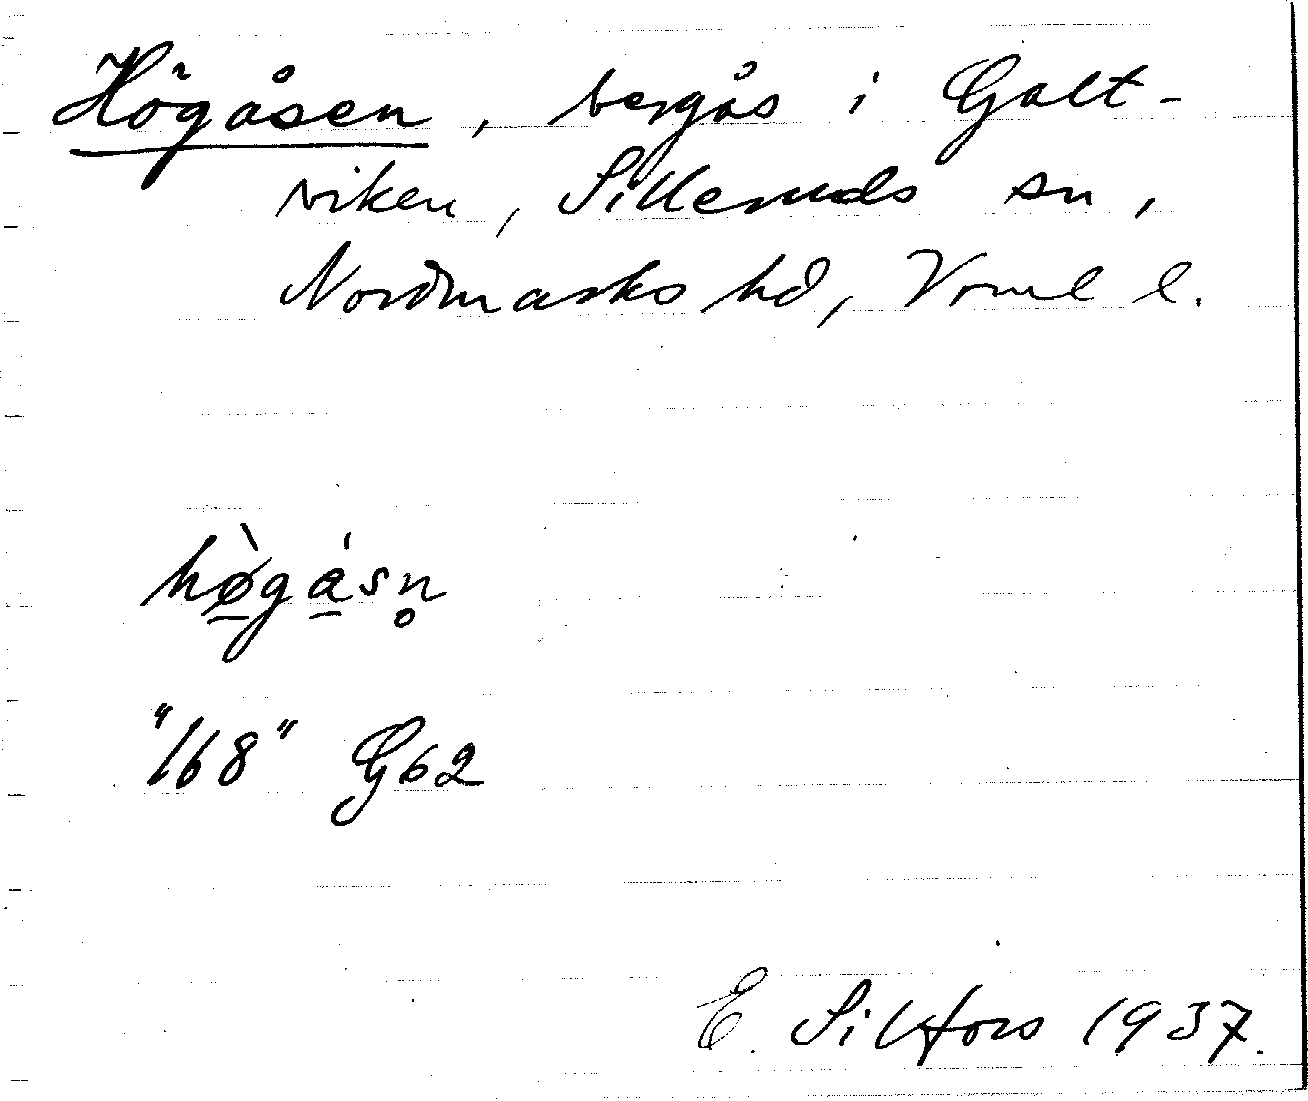 Högåsen, bergås i Galt-
viken, Silleruds sn,
Nordmarks hd, Vrml l.
hø̱̀gá̱sn̥
"168" G62
E. Silfors 1937.